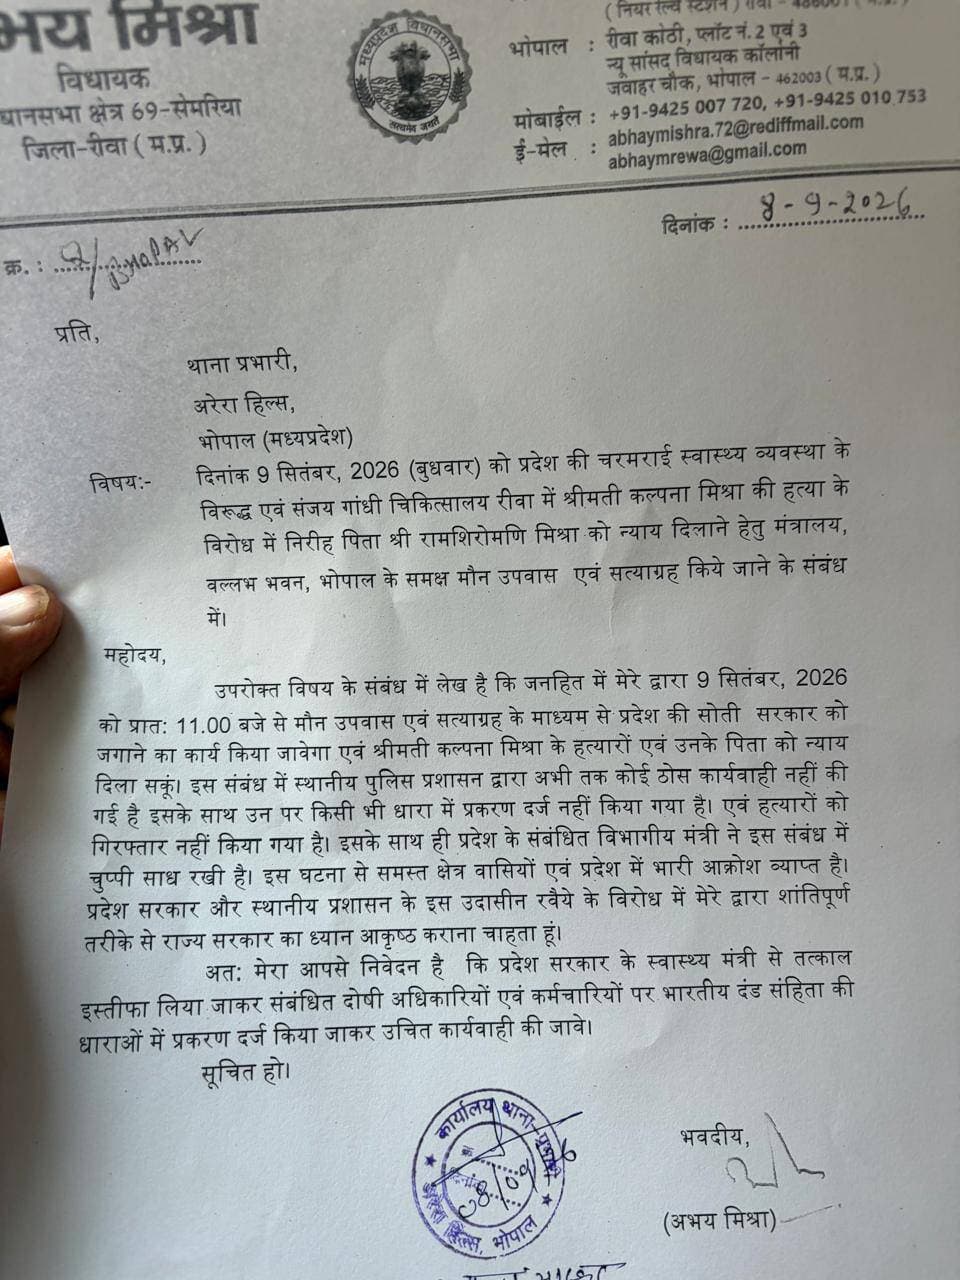 भय मिश्रा
विधायक
धानसभा क्षेत्र 69-सेमरिया
जिला-रीवा ( म.प्र. )
मध्यप्रदेश विधानसभा
सत्यमेव जयते
(नियर रेल्वे स्टेशन) रीवा - 486001 (म.प्र.)
भोपाल : रीवा कोठी, प्लॉट नं. 2 एवं 3
न्यू सांसद विधायक कॉलोनी
जवाहर चौक, भोपाल - 462003 ( म.प्र. )
मोबाईल : +91-9425 007 720, +91-9425 010 753
ई-मेल : abhaymishra.72@rediffmail.com
abhaymrewa@gmail.com
दिनांक : 8-9-2026
क्र. :
प्रति,
थाना प्रभारी,
अरेरा हिल्स,
भोपाल (मध्यप्रदेश)
विषय:- दिनांक 9 सितंबर, 2026 (बुधवार) को प्रदेश की चरमराई स्वास्थ्य व्यवस्था के
विरूद्ध एवं संजय गांधी चिकित्सालय रीवा में श्रीमती कल्पना मिश्रा की हत्या के
विरोध में निरीह पिता श्री रामशिरोमणि मिश्रा को न्याय दिलाने हेतु मंत्रालय,
वल्लभ भवन, भोपाल के समक्ष मौन उपवास एवं सत्याग्रह किये जाने के संबंध
में।
महोदय,
उपरोक्त विषय के संबंध में लेख है कि जनहित में मेरे द्वारा 9 सितंबर, 2026
को प्रात: 11.00 बजे से मौन उपवास एवं सत्याग्रह के माध्यम से प्रदेश की सोती सरकार को
जगाने का कार्य किया जावेगा एवं श्रीमती कल्पना मिश्रा के हत्यारों एवं उनके पिता को न्याय
दिला सकूं। इस संबंध में स्थानीय पुलिस प्रशासन द्वारा अभी तक कोई ठोस कार्यवाही नहीं की
गई है इसके साथ उन पर किसी भी धारा में प्रकरण दर्ज नहीं किया गया है। एवं हत्यारों को
गिरफ्तार नहीं किया गया है। इसके साथ ही प्रदेश के संबंधित विभागीय मंत्री ने इस संबंध में
चुप्पी साध रखी है। इस घटना से समस्त क्षेत्र वासियों एवं प्रदेश में भारी आक्रोश व्याप्त है।
प्रदेश सरकार और स्थानीय प्रशासन के इस उदासीन रवैये के विरोध में मेरे द्वारा शांतिपूर्ण
तरीके से राज्य सरकार का ध्यान आकृष्ठ कराना चाहता हूं।
अत: मेरा आपसे निवेदन है कि प्रदेश सरकार के स्वास्थ्य मंत्री से तत्काल
इस्तीफा लिया जाकर संबंधित दोषी अधिकारियों एवं कर्मचारियों पर भारतीय दंड संहिता की
धाराओं में प्रकरण दर्ज किया जाकर उचित कार्यवाही की जावे।
सूचित हो।
कार्यालय थाना-प्रभारी
दिनांक 08/09/26
अरेरा हिल्स, भोपाल
भवदीय,
(अभय मिश्रा)